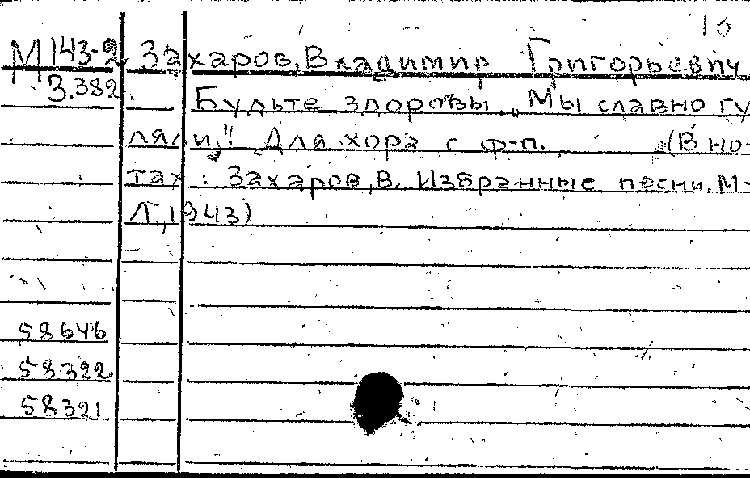 16
М143-2 Захаров, Владимир Григорьевич
З.382. Будьте здоровы „Мы славно гу
ляли". Для хора с ф-п. (В но-
тах: Захаров, В. Избранные песни. М-
Л, 1943)
58646
58322
58321